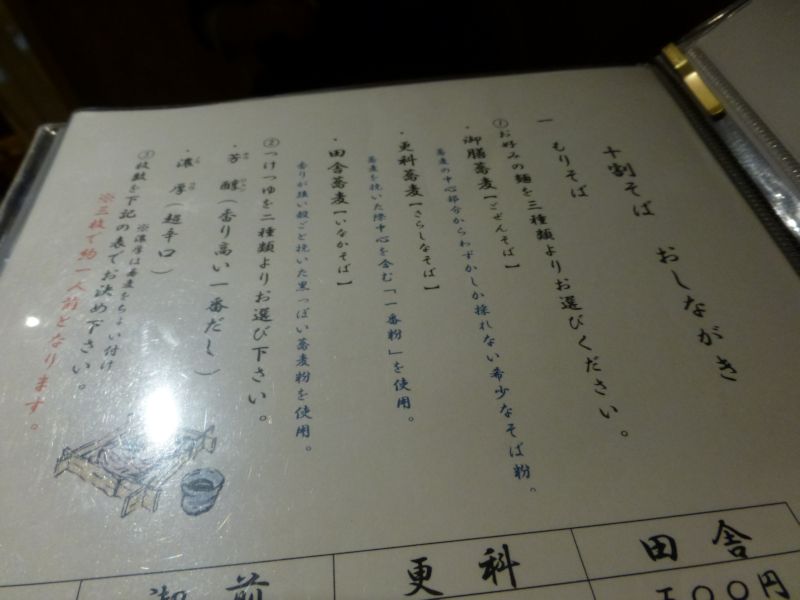 十割そば おしながき
一 もりそば
①お好みの麺を三種類よりお選びください。
・御膳蕎麦【ごぜんそば】
蕎麦の中心部分からわずかしか採れない希少なそば粉。
・更科蕎麦【さらしなそば】
蕎麦を挽いた際中心を含む「一番粉」を使用。
・田舎蕎麦【いなかそば】
香りが強い殻ごと挽いた黒っぽい蕎麦粉を使用。
②つけつゆを二種類よりお選び下さい。
・芳醇(香り高い一番だし)
・濃厚(超辛口)
※濃厚は蕎麦をちょい付け
③枚数を下記の表でお決め下さい。
※三枚で約一人前となります。
御前 更科 田舎
００円